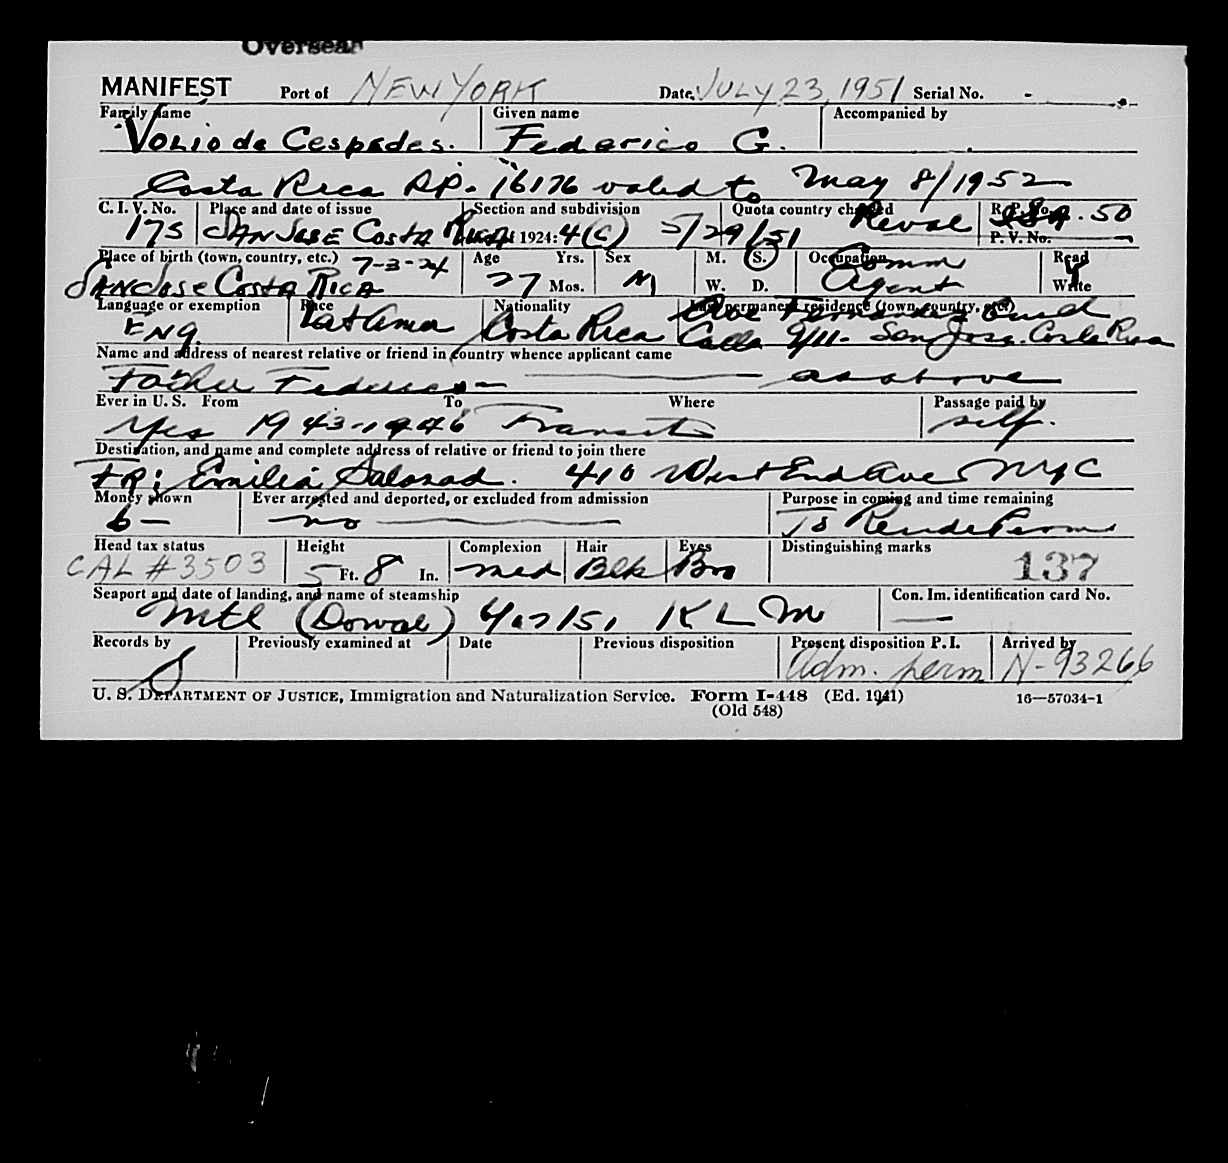 Overseas
MANIFEST Port of NEW YORK Date, JULY 23, 1951 Serial No. -
Family name Given name Accompanied by
Volio de Cespedes. Federico G.
Costa Rica P.P. 16176 valid to May 8/1952
C. I. V. No. Place and date of issue Section and subdivision Quota country charged R. P. No.
175 SAN JOSE COSTA RICA 1924: 4(c) 5/29/51 50
P. V. No. —
Place of birth (town, country, etc.) 7-3-24 Age Yrs. Sex M. S. Occupation Read
SAN JOSE COSTA RICA 27 Mos. M W. D. Comm Agent Write
Language or exemption Race Nationality Last permanent residence (town, country, etc.)
ENg. Lat Amer Costa Rica
Calle 9/11- San Jose. Costa Rica
Name and address of nearest relative or friend in country whence applicant came
Father Federico — as above
Ever in U. S. From To Where Passage paid by
Yes 1943-1946 Transit self.
Destination, and name and complete address of relative or friend to join there
FR: Emilia Salazad. 410 West End Ave NYC
Money shown Ever arrested and deported, or excluded from admission Purpose in coming and time remaining
6— no — To Reside Perm
Head tax status Height Complexion Hair Eyes Distinguishing marks
CAL #3503 5 Ft. 8 In. med Blk Bro 137
Seaport and date of landing, and name of steamship Con. Im. identification card No.
Mtl (Dorval) KLM —
Records by Previously examined at Date Previous disposition Present disposition P. I. Arrived by
Adm. perm N-93266
U. S. DEPARTMENT OF JUSTICE, Immigration and Naturalization Service. Form I-448 (Ed. 1941) 16—57034-1
(Old 548)